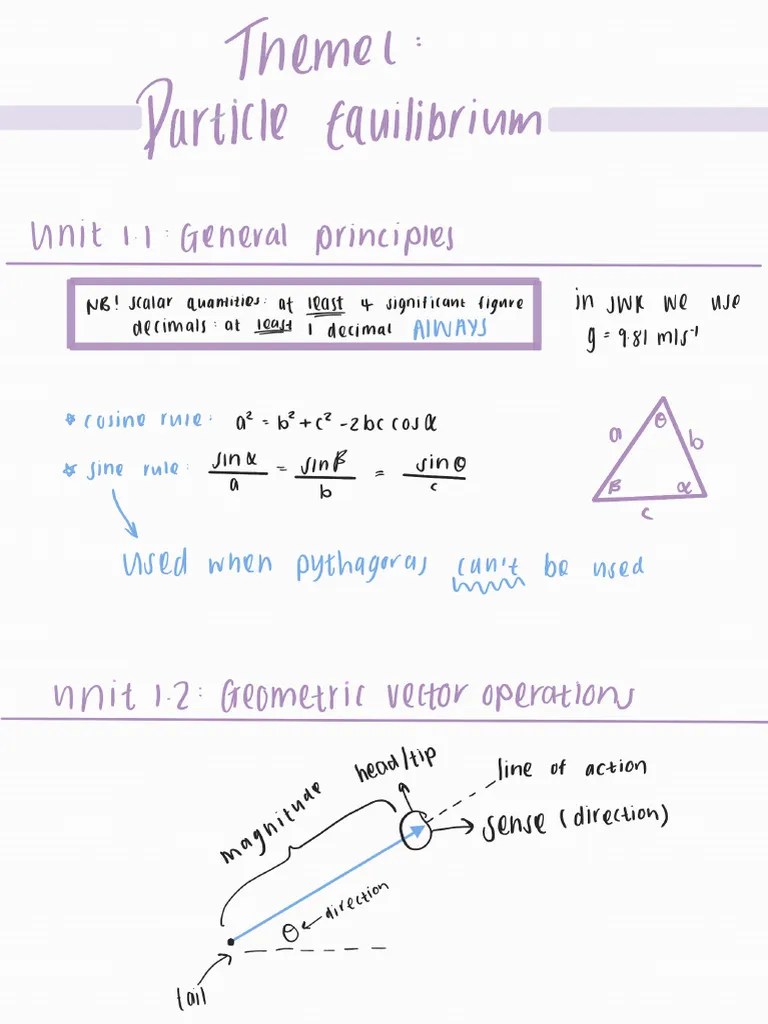 Theme 1:
Particle Equilibrium
Unit 1.1: General principles
NB! scalar quantities: at least 4 significant figure
decimals: at least 1 decimal ALWAYS
in SWK we use
g = 9.81 m/s⁻¹
* cosine rule: a² = b² + c² - 2bc cos α
* sine rule: sin α / a = sin β / b = sin θ / c
used when pythagoras can't be used
θ
a
b
β
α
c
Unit 1.2: Geometric vector operations
head/tip
line of action
magnitude
sense (direction)
θ ← direction
tail